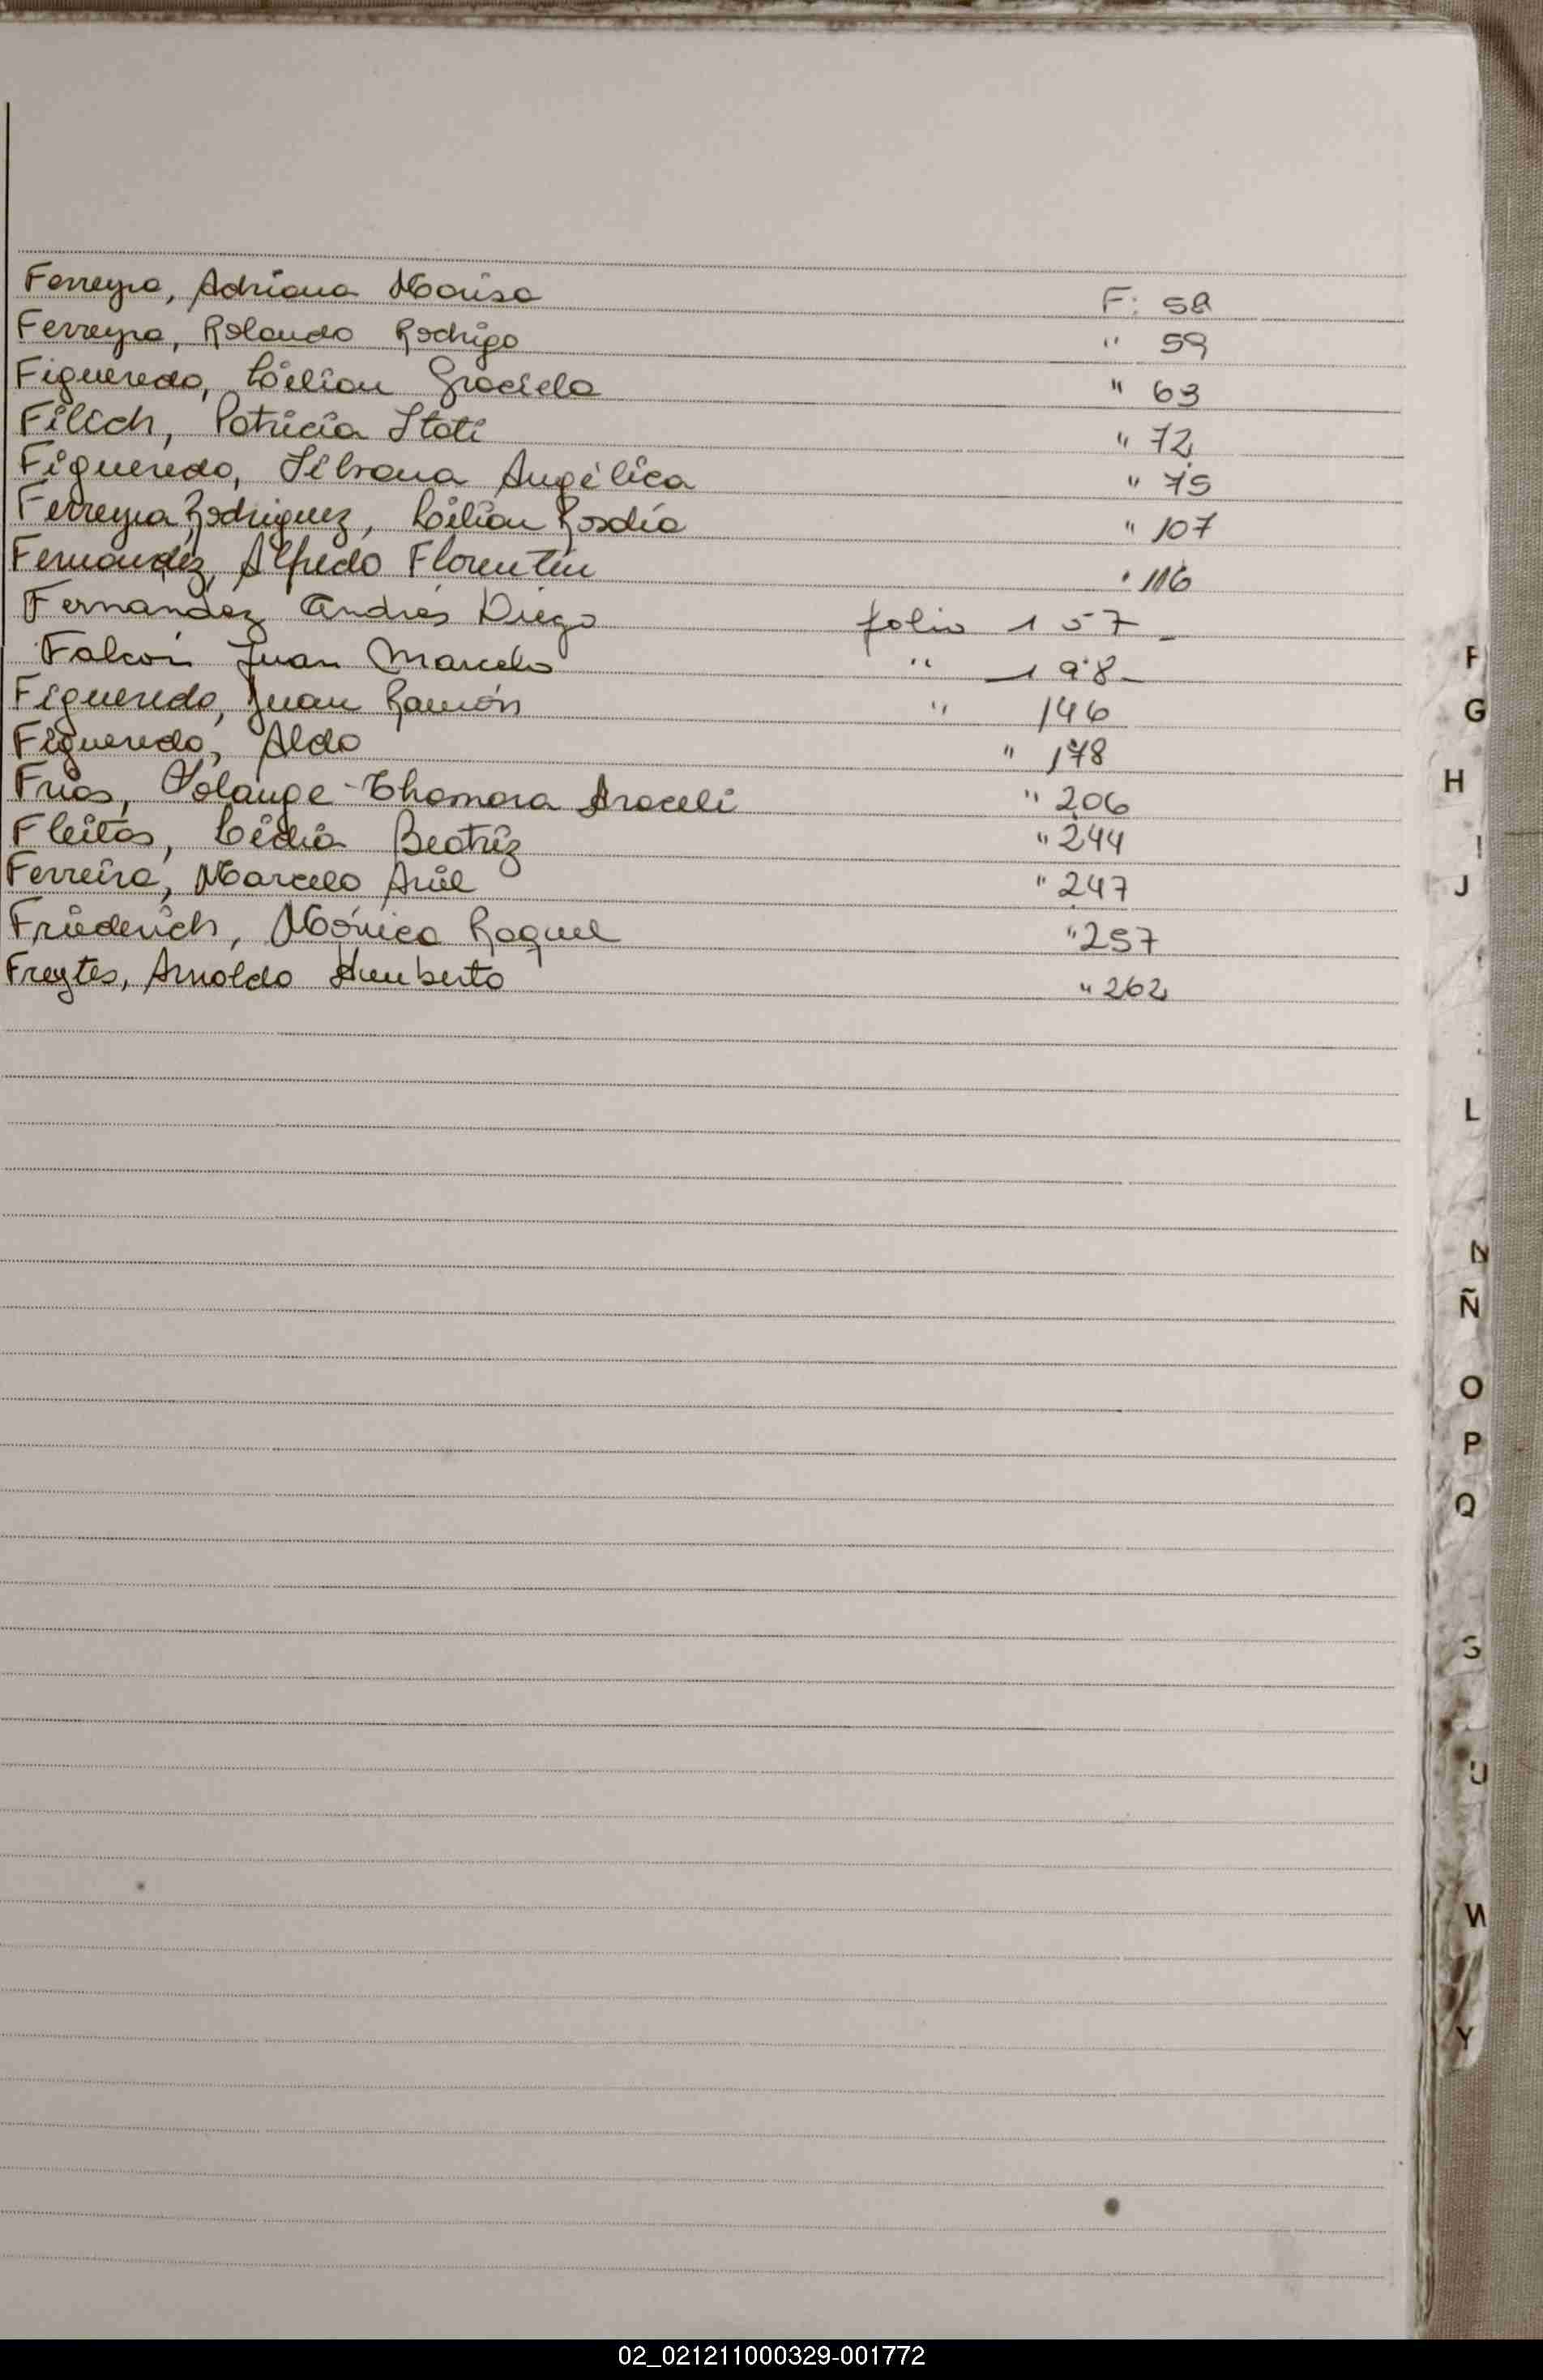 Ferreyra, Adriana Marisa F: 58
Ferreyra, Rolando Rodrigo " 59
Figueredo, Lilian Graciela " 63
Filich, Patricia Itatí " 72
Figueredo, Silvana Angélica " 75
Ferreyra Rodriguez, Lilian Rosalía " 107
Fernández, Alfredo Florentín " 116
Fernandez Andrés Diego folio 157
Falcón Juan Marcelo " 198
Figueredo, Juan Ramón " 146
Figueredo, Aldo " 178
Frias, Solange Thamara Araceli " 206
Fleitas, Lidia Beatriz " 244
Ferreira, Marcelo Ariel " 247
Friederich, Mónica Raquel " 257
Freytes, Arnoldo Humberto " 262
F
G
H
I
J
L
N
Ñ
O
P
Q
S
U
W
Y
02_021211000329-001772